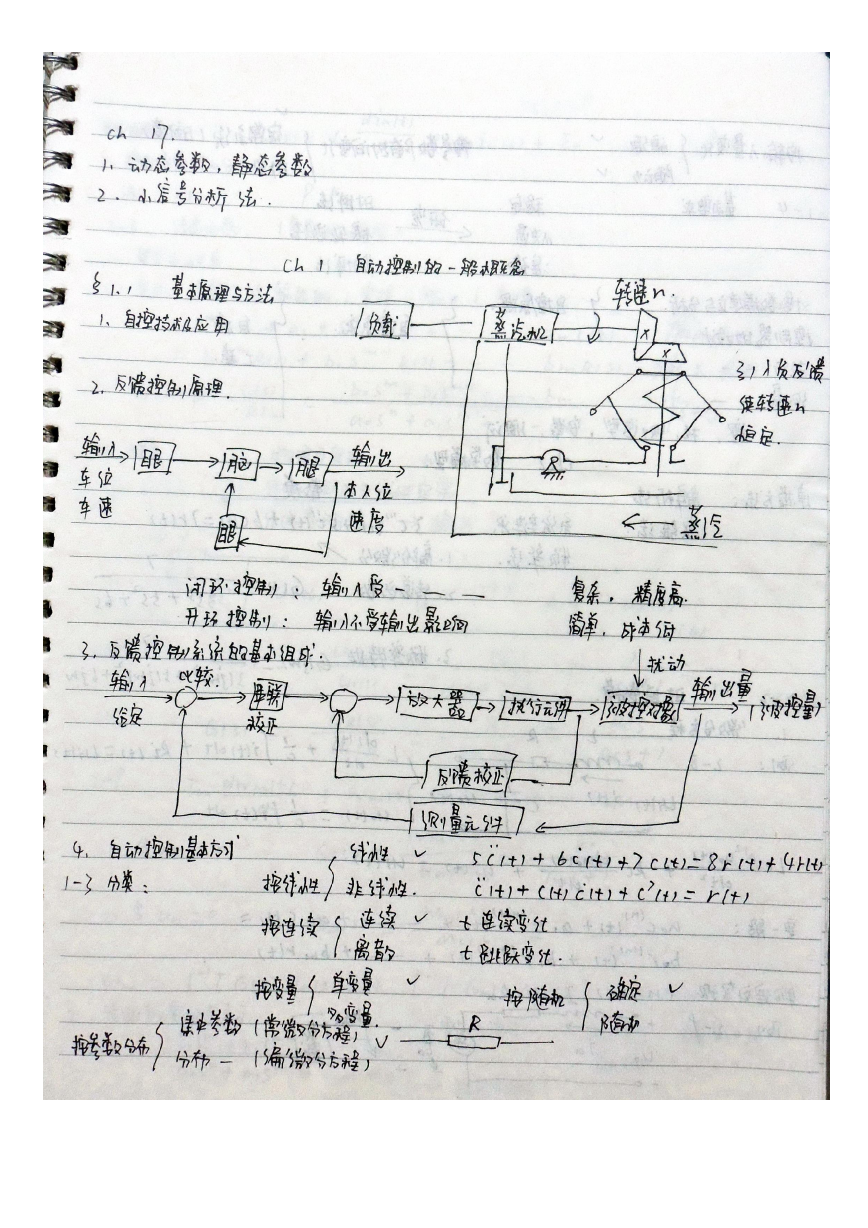 ch 17.
1、动态参数，静态参数
2. 小信号分析法.
Ch 1 自动控制的一般概念
§1.1 基本原理与方法
转速n.
1、自控技术及应用
负载
蒸汽机
引入负反馈
使转速n
恒定.
2. 反馈控制原理.
输入
车位
车速
眼
脑
腿
输出
本人位
速度
眼
R
蒸汽
闭环控制： 输入受— — — 复杂，精度高.
开环控制： 输入不受输出影响 简单，成本低
3、反馈控制系统的基本组成.
扰动
输入
给定
比较.
串联
校正
放大器
执行元件
被控对象
输出量
(被控量)
反馈校正
测量元件
4、自动控制基本方式
1-3 分类：
按线性
线性 ✓ 5c̈(t)+6ċ(t)+7c(t)=8ṙ(t)+4r(t)
非线性. c̈(t)+c(t)ċ(t)+c²(t)=r(t)
按连续
连续 ✓ t 连续变化
离散 t 跳跃变化.
按变量
单变量 ✓
双变量.
按随机
确定 ✓
随机
按参数分布
集中参数 (常微分方程) ✓
分布— (偏微分方程)
R